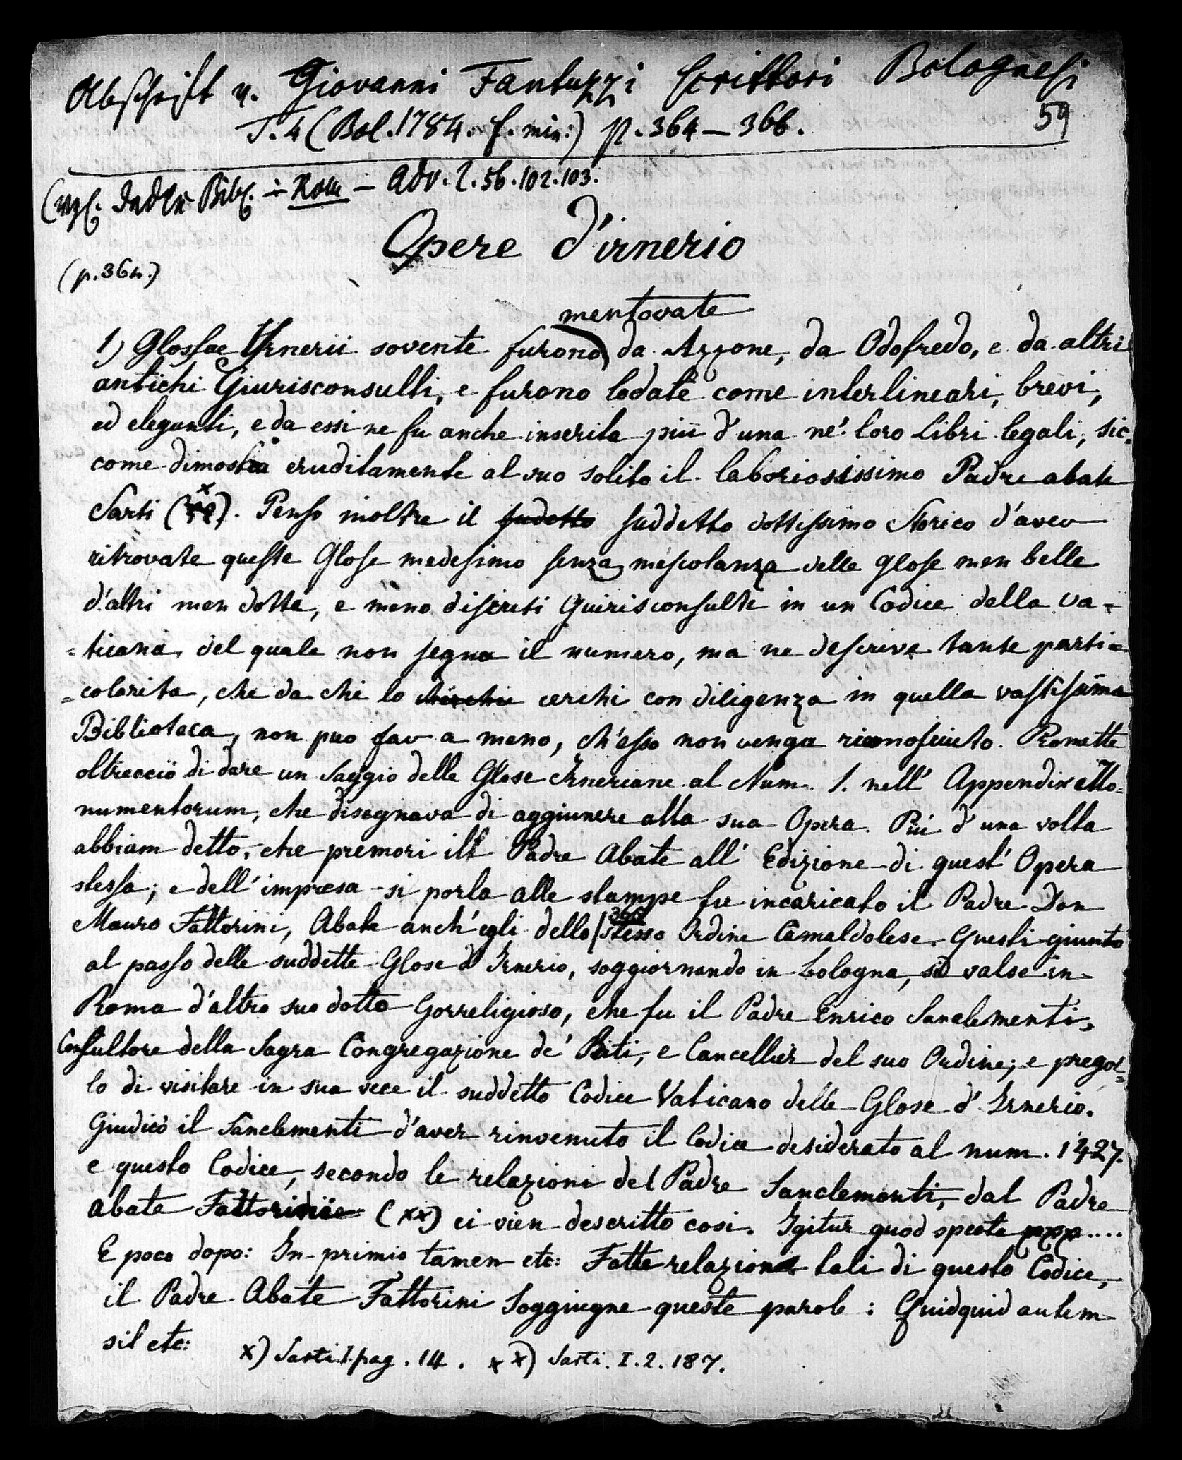 Abschrift v. Giovanni Fantuzzi Scrittori Bolognesi
T. 4 (Bol. 1784. f. min:) p. 364 — 366.
59
(vgl. Bibl. i Rom — Adv. 2. 56. 102. 103.
Opere d'irnerio
(p. 364.)
mentovate
1) Glossae Irnerii sovente furono da Azzone, da Odofredo, e da altri
antichi Giurisconsulti, e furono lodate come interlineari, brevi,
ed eleganti, e da essi ne fu anche inserita più d'una ne' loro Libri legali, sic-
come dimostra eruditamente al suo solito il laboriosissimo Padre abate
Sarti (x). Penso inoltre il sudetto suddetto dottissimo Storico d'aver
ritrovate queste Glose medesimo senza mescolanza delle glose men belle
d'altri men dotte, e meno discreti Guirisconsulti in un Codice della va-
=ticana, del quale non segna il numero, ma ne descrive tante parti=
=colarita, che da chi lo cerchi con diligenza in quella vastissima
Biblioteca, non puo far a meno, ch'esso non venga riconosciuto. Promette
oltrecciò di dare un Saggio delle Glose Irneriane al Num. 1. nell' Appendix Mo=
numentorum, che disegnava di aggiunere alla sua Opera. Più d'una volta
abbiam detto, che premori ill Padre Abate all' Edizione di quest' Opera
stessa; e dell' impresa si porla alle stampe fu incaricato il Padre Don
Mauro Fattorini, Abate anch'egli dello |365 stesso Ordine Camaldolese. Questi giunto
al passo delle suddette Glose d'Irnerio, soggiornando in bologna, si valse in
Roma d'altro suo dotto Correligioso, che fu il Padre Enrico Sanclementi,
Consultore della Sagra Congregazione de' Riti, e Cancellier del suo Ordine; e pregol=
lo di visitare in sua vece il suddetto Codice Vaticano delle Glose d'Irnerio.
Giudicò il Sanclementi d'aver rinvenuto il Codice desiderato al num. 1427.
e questo Codice, secondo le relazioni del Padre Sanclementi, dal Padre
abate Fattorini (xx) ci vien descritto cosi. Igitur quod specte ....
E poco dopo: In primis tamen etc: Fatte relazione tali di questo Codice,
il Padre Abate Fattorini Soggiugne queste parole: Quidquid autem
sit etc:
x) Sarti I. pag. 14. xx) Sarti. I. 2. 187.